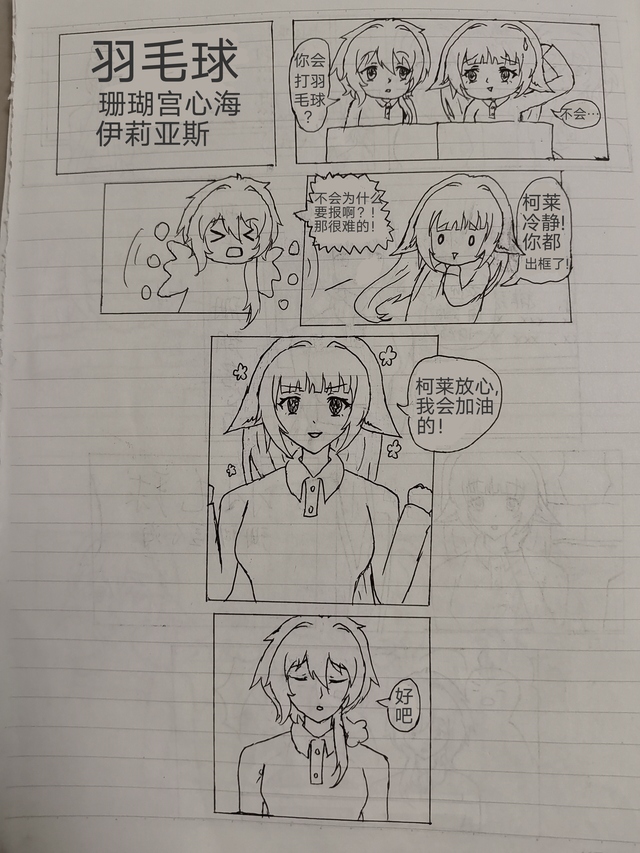 羽毛球
珊瑚宫心海
伊莉亚斯
你会
打羽
毛球
？
不会…
不会为什么
要报啊？！
那很难的！
柯莱
冷静！
你都
出框了！
柯莱放心，
我会加油
的！
好
吧